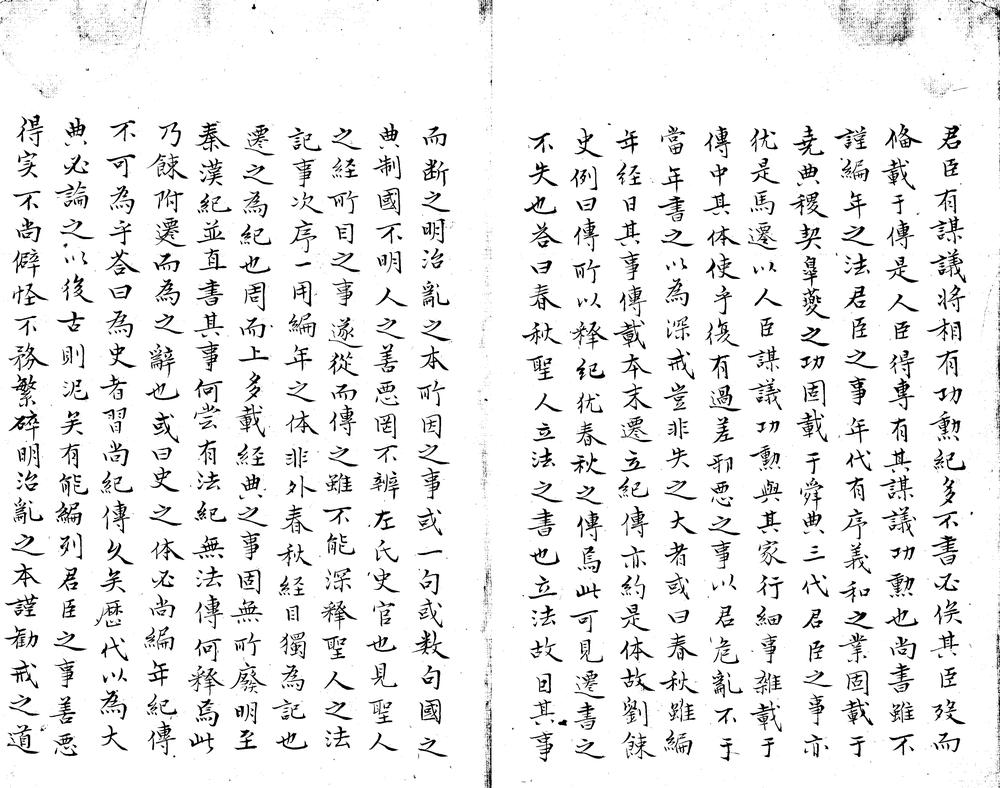 君臣有謀議將相有功勲紀多不書必俟其臣歿而
俻載于傳是人臣得專有其謀議功勲也尚書雖不
謹編年之法君臣之事年代有序義和之業固載于
堯典稷契皐夔之功固載于舜典三代君臣之事亦
犹是馬遷以人臣謀議功勲與其家行細事雜載于
傳中其体便乎復有過差邪悪之事以君危亂不于
當年書之以為深戒豈非失之大者或曰春秋雖編
年経目其事傳載本末遷立紀傳亦約是体故劉餗
史例曰傳所以释紀犹春秋之傳焉此可見遷書之
不失也荅曰春秋聖人立法之書也立法故目其事
而断之明治亂之本所因之事或一句或数句國之
典制國不明人之善悪罔不辨左氏史官也見聖人
之経所目之事遂從而傳之雖不能深釋聖人之法
記事次序一用編年之体非外春秋経目獨為記也
遷之為紀也周而上多載経典之事固無所廢明至
秦漢紀並直書其事何尝有法紀無法傳何释焉此
乃餗附遷而為之辭也或曰史之体必尚編年紀傳
不可為乎荅曰為史者習尚紀傳久矣歴代以為大
典必論之以後古則泥矣有能編列君臣之事善悪
得实不尚僻怪不務繁碎明治亂之本謹勧戒之道